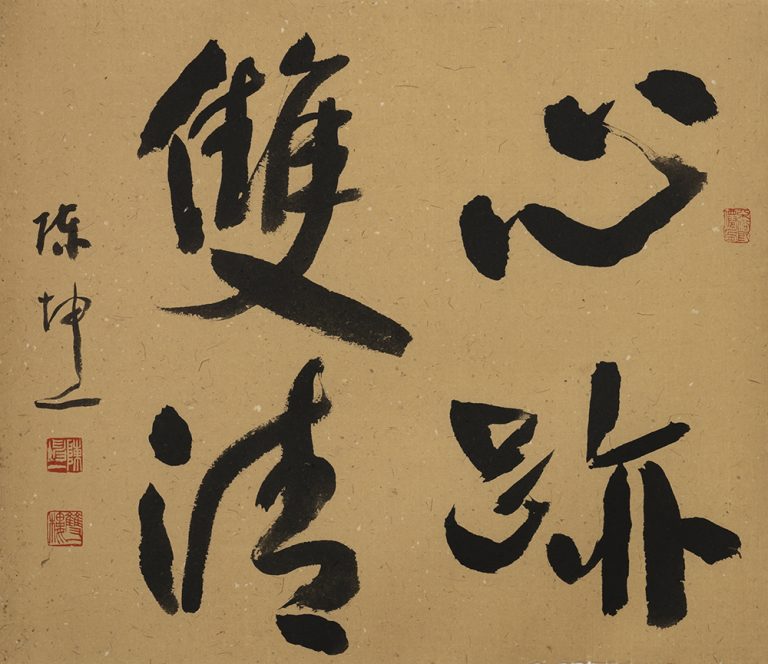 心跡
雙清
陳坤一